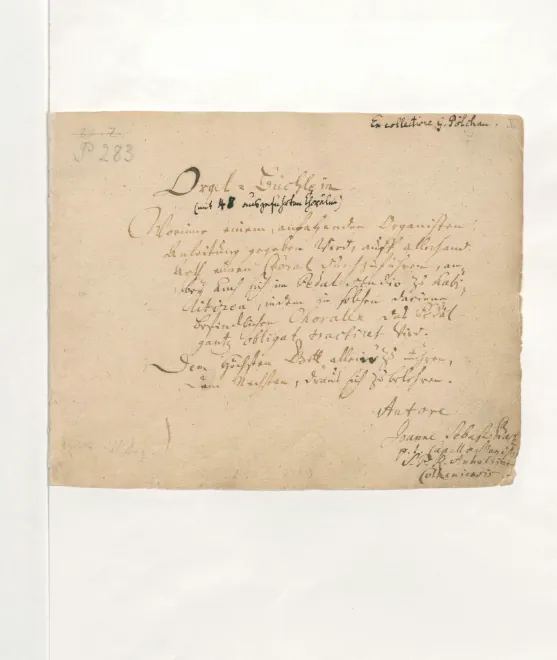 Ex collectione G. Pölchau.
P 283
Orgel-Büchlein
(mit 48 ausgeführten Chorälen)
Worinne einem anfahenden Organisten
Anleitung gegeben wird, auff allerhand
Arth einen Choral durchzuführen, an-
bey auch sich im Pedal studio zu habi-
litiren, indem in solchen darinne
befindlichen Choralen das Pedal
gantz obligat tractiret wird.
Dem Höchsten Gott allein zu Ehren,
Dem Nechsten, draus sich zu belehren.
Autore
Joanne Sebast: Bach
p. t. Capellæ Magistri
S. P. R. Anhaltini-
Cotheniensis